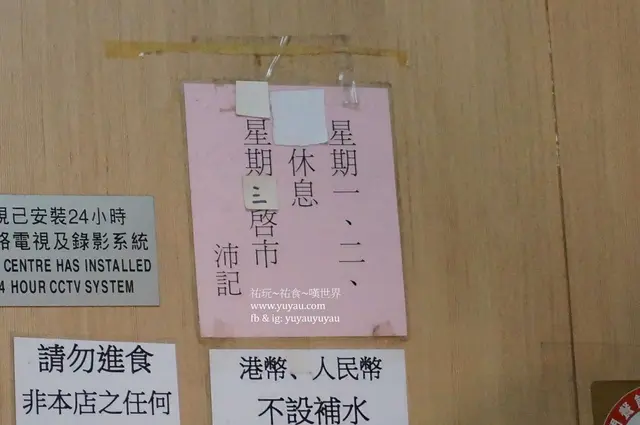 星期一、二、
休息
星期三啓市
沛記
祐玩~祐食~嘆世界
www.yuyau.com
fb & ig: yuyauyuyau
現已安裝24小時
路電視及錄影系統
CENTRE HAS INSTALLED
4 HOUR CCTV SYSTEM
請勿進食
非本店之任何
港幣、人民幣
不設補水